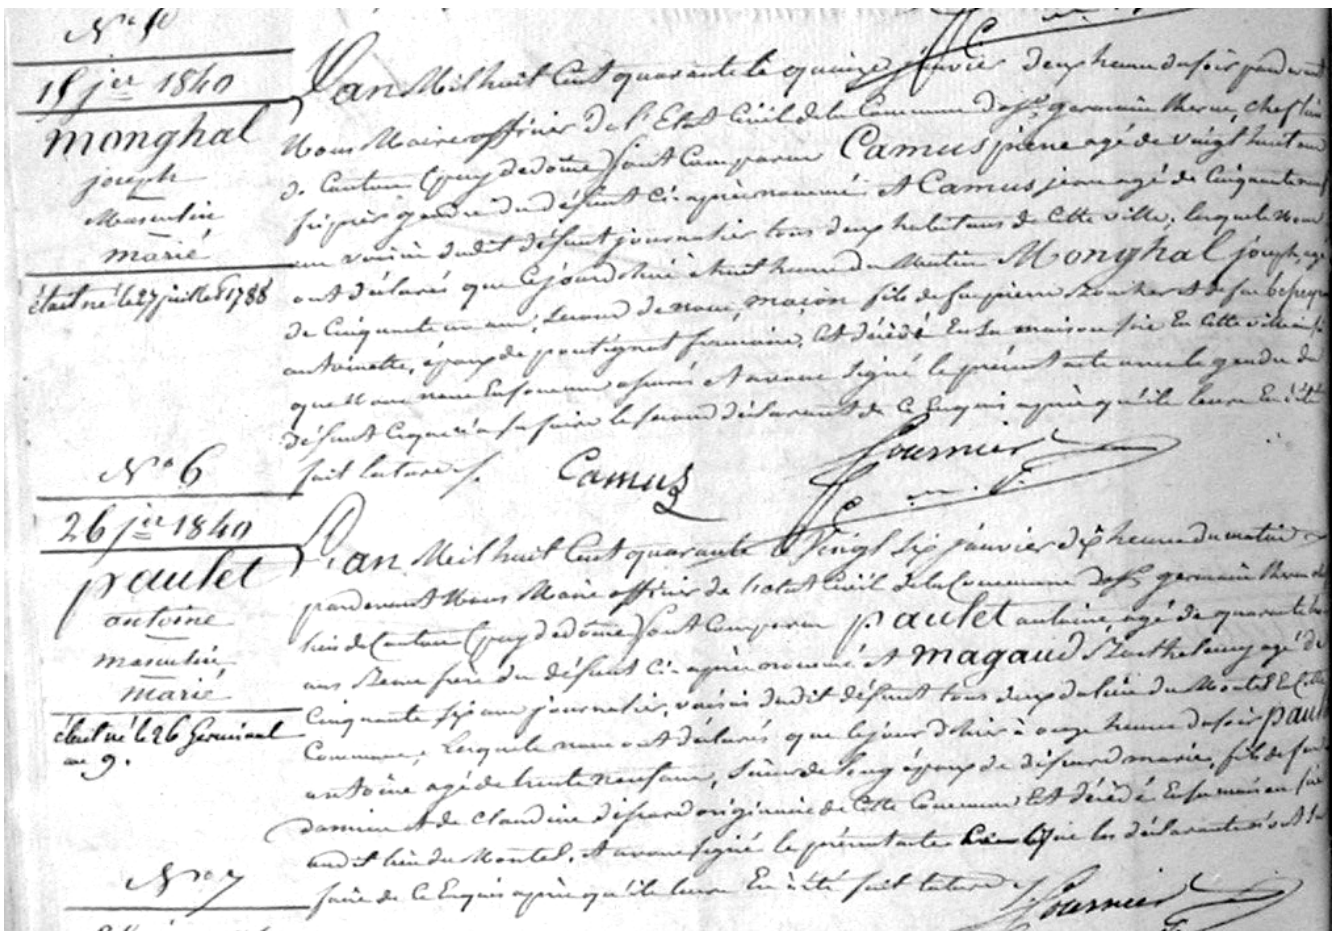 N.º 5
15 jer 1840
monghal
joseph
Masculin
marié
était né le 27 juillet 1788
L'an Mil huit Cent quarante le quinze janvier deux heure du soir pardevant
Nous Maire officier de l'Etat Civil de la Commune de St germain lherm, chef lieu
de Canton (puy de dôme) sont Comparu Camus pierre agé de vingt huit ans
gendre du défunt ci-après nommé et Camus jean agé de Cinquante
ans voisin dudit défunt journalier tous deux habitans de Cette ville; lesquels nous
ont déclarés que Cejourd'hui à huit heure du Matin Monghal joseph, agé
de Cinquante un ans, second de nom, maçon fils de feu pierre et de feu
antoinette, époux de pontignat, Est décédé En sa maison sise En Cette ville
que nous nous En sommes assurés et avons signé le présent acte avec le gendre du
défunt le second déclarant de Ce Enquis après qu'il leurs En a été
fait lecture
Camus
Fournier
N.º 6
26 jer 1840
paulet
antoine
masculin
marié
était né le 26 Germinal
an 9.
L'an Mil huit Cent quarante le Vingt six janvier dix heure du matin
pardevant Nous Maire officier de l'état Civil de la Commune de St germain lherm chef
lieu de Canton (puy de dôme) sont Comparu paulet antoine, agé de quarante
ans frère du défunt ci-après nommé et magaud Barthelemy agé de
Cinquante six ans journalier, voisin dudit défunt tous deux du lieu du Montel En Cette
Commune, Lesquels nous ont déclarés que le jour d'hier à onze heure du soir paulet
antoine agé de trente neuf ans, sieur de long époux de disard marie, fils de feu
damien et de Claudine disard originaire de Cette Commune Est décédé En sa maison sise
audit lieu du Montel. et avons signé le présent acte les déclarants
faire de Ce Enquis après qu'il leurs En a été fait lecture
Fournier
N.º 7